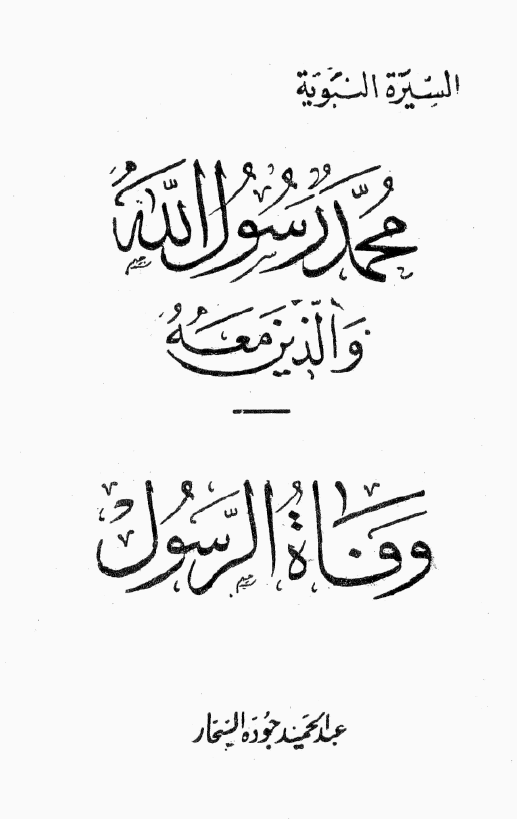 السِّيرَة النَّبَوِيَّة
مُحَمَّدٌ رَسُولُ اللَّهِ
وَالَّذِينَ مَعَهُ
وَفَاةُ الرَّسُولْ
عبد الحميد جودة السحار